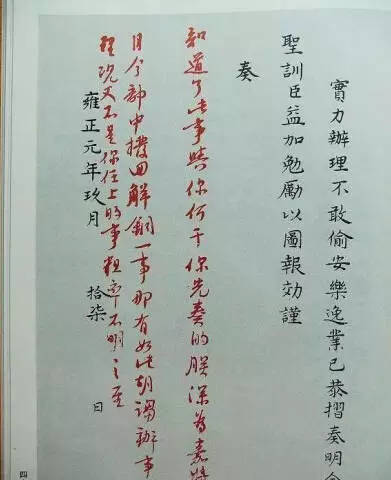 實力辦理不敢偷安樂逸業已恭摺奏明今
聖訓臣益加勉勵以圖報効謹
奏
知道了此事與你何干你先奏的朕深為嘉
目今部中撥回解銅一事那有如此胡謅辦事
理况又不是你任上的事粗率不明之至
雍正元年玖月 拾柒 日
四